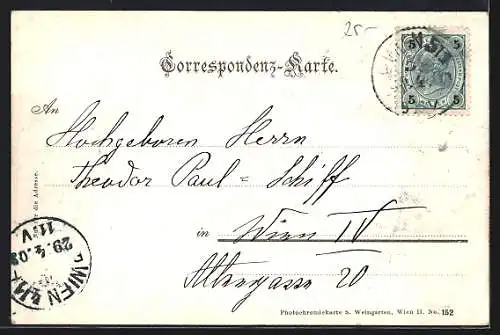 25-
5 5
5 5
Correspondenz-Karte.
An
Hochgeboren Herrn
Theodor Paul-Schiff
in Wien IV
Altengasse 20
die Adresse.
WIEN 4/1
29.4.03
11.V
Photochromiekarte S. Weingarten, Wien II. No. 152